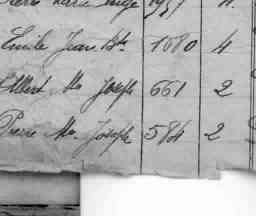 Emile Jean Bte 1080 4
Albert Me Joseph 661 2
Pierre Me Joseph 584 2